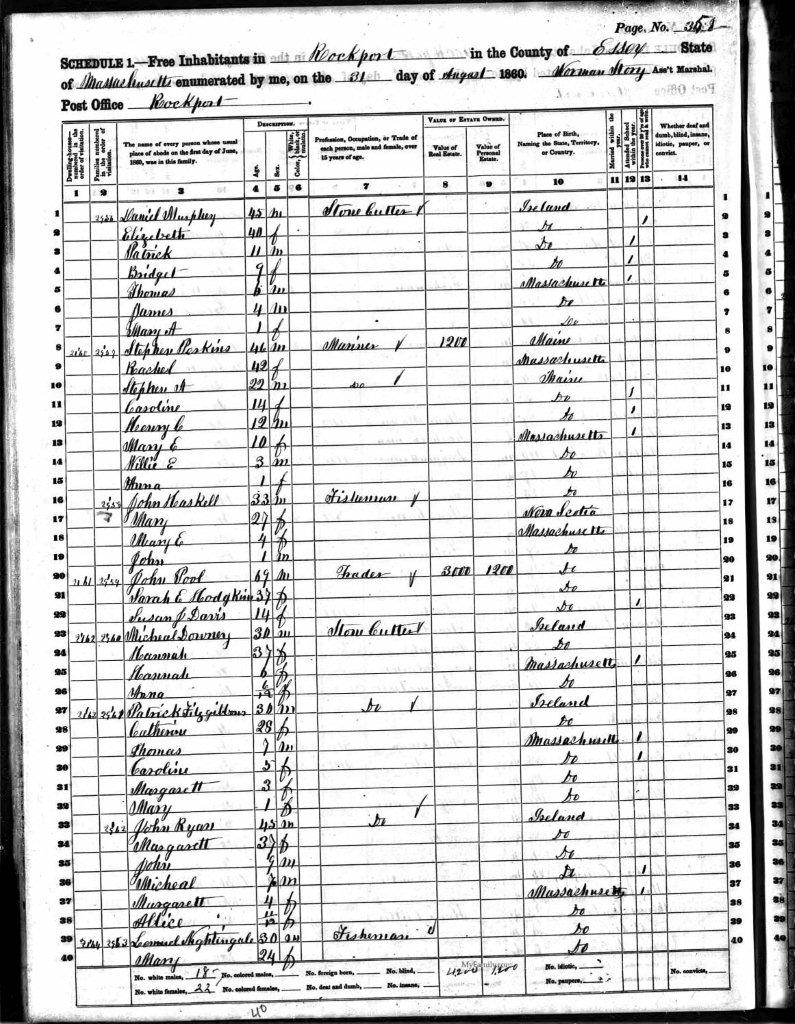 Page. No. 358
SCHEDULE 1.—Free Inhabitants in Rockport in the County of Essex State
of Massachusetts enumerated by me, on the 31 day of August 1860. Norman Story Ass't Marshal.
Post Office Rockport.
Dwelling-houses—numbered in the order of visitation.
Families numbered in the order of visitation.
The name of every person whose usual place of abode on the first day of June, 1860, was in this family.
DESCRIPTION.
Age.
Sex.
Color, White, black, or mulatto.
Profession, Occupation, or Trade of each person, male and female, over 15 years of age.
VALUE OF ESTATE OWNED.
Value of Real Estate.
Value of Personal Estate.
Place of Birth, Naming the State, Territory, or Country.
Married within the year.
Attended School within the year.
Persons over 20 y'rs of age who cannot read & write.
Whether deaf and dumb, blind, insane, idiotic, pauper, or convict.
1 2 3 4 5 6 7 8 9 10 11 12 13 14
1 Daniel Murphy 45 m Stone Cutter Ireland 1
2 Elizabeth 40 f Do 1 2
3 Patrick 11 m Do 1 3
4 Bridget 9 f Do 1 4
5 Thomas 6 m Massachusetts 1 5
6 James 4 m Do 6
7 Mary A 1 f Do 7
8 Stephen Perkins 46 m Mariner 1200 Maine 8
9 Rachel 42 f Massachusetts 9
10 Stephen A 22 m Do Maine 10
11 Caroline 14 f Do 1 11
12 Henry C 12 m Do 1 12
13 Mary E 10 f Massachusetts 1 13
14 Willie E 3 m Do 14
15 Anna 1 f Do 15
16 John Haskell 33 m Fisheman Do 16
17 Mary 27 f Nova Scotia 17
18 Mary E 4 f Massachusetts 18
19 John 1 m Do 19
20 2161 2559 John Pool 69 m Trader 3000 1200 Do 20
21 Sarah E Hodgkins 37 f Do 21
22 Susan J Davis 14 f Do 1 22
23 2162 2560 Micheal Downey 30 m Stone Cutter Ireland 23
24 Hannah 37 f Do 24
25 Hannah 6 f Massachusetts 1 25
26 Anna f Do 26
27 2163 2561 Patrick Fitzgibbons 30 m Do Ireland 27
28 Catherine 28 f Do 28
29 Thomas 7 m Massachusetts 1 29
30 Caroline 5 f Do 1 30
31 Margarett 3 f Do 31
32 Mary 1 f Do 32
33 2562 John Ryan 45 m Do Ireland 33
34 Margarett 37 f Do 34
35 John 9 m Do 35
36 Micheal m Do 1 36
37 Margarett 4 f Massachusetts 1 37
38 Allice f Do 38
39 2164 2563 Lemuel Nightingale 30 m Fisheman Do 39
40 Mary 24 f Do 40
No. white males, 18 No. colored males, No. foreign born, No. blind, 4200 1200 No. idiotic, No. convicts,
No. white females, 22 No. colored females, No. deaf and dumb, No. insane, No. paupers,
40